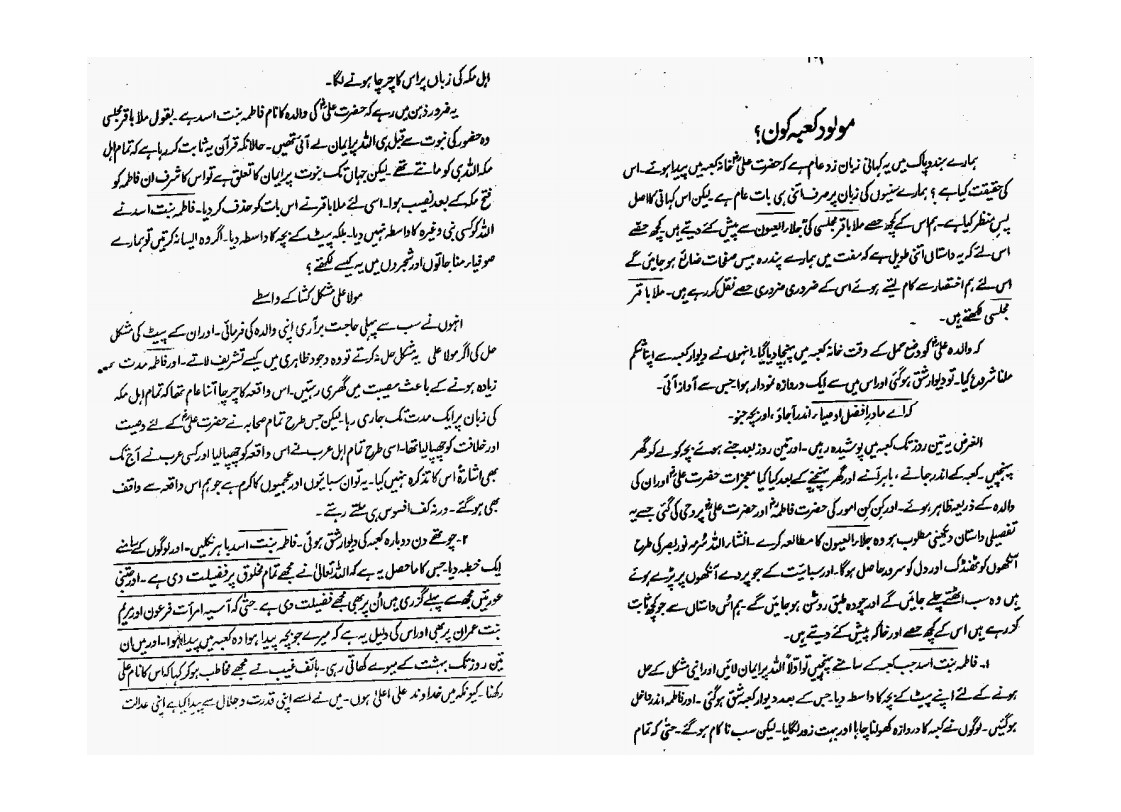 ۱۰۹
مولود کعبہ کون؟
ہمارے ہند و پاک میں یہ کہانی زبان زد عام ہے کہ حضرت علیؓ خانہ کعبہ میں پیدا ہوئے۔ اس
کی حقیقت کیا ہے؟ ہمارے سنیوں کی زبان پر صرف اتنی ہی بات عام ہے۔ لیکن اس کہانی کا اصل
پس منظر کیا ہے۔ ہم اس کے کچھ حصے ملا باقر مجلسی کی جلاء العیون سے پیش کئے دیتے ہیں۔ کچھ حصے
اس لئے کہ یہ داستان اتنی طویل ہے کہ مفت میں ہمارے پندرہ بیس صفحات ضائع ہو جائیں گے
اس لئے ہم اختصار سے کام لیتے ہوئے اس کے ضروری ضروری حصے نقل کر رہے ہیں۔ ملا باقر
مجلسی لکھتے ہیں۔
کہ والدہ علیؓ کو وضع حمل کے وقت خانہ کعبہ میں پہنچا دیا گیا۔ انہوں نے دیوار کعبہ سے اپنا شکم
ملنا شروع کیا۔ تو دیوار شق ہو گئی اور اس میں سے ایک دروازہ نمودار ہوا جس سے آواز آئی۔
کہ اے مادر افضل اوصیاء اندر آجاؤ، اور بچہ جنو۔
الغرض یہ تین روز تک کعبہ میں پوشیدہ رہیں۔ اور تین روز بعد جنے ہوئے بچہ کو لے کر گھر
پہنچیں۔ کعبہ کے اندر جانے، باہر آنے اور گھر پہنچنے کے بعد کیا کیا معجزات حضرت علیؓ اور ان کی
والدہ کے ذریعہ ظاہر ہوئے۔ اور کن کن امور کی حضرت فاطمہؓ اور حضرت علیؓ پر وحی کی گئی جسے یہ
تفصیلی داستان دیکھنی مطلوب ہو وہ جلاء العیون کا مطالعہ کرے۔ انشاء اللہ سرمہ نور بصر کی طرح
آنکھوں کو ٹھنڈک اور دل کو سرور حاصل ہوگا۔ اور سبائیت کے جو پردے آنکھوں پر پڑے ہوئے
ہیں وہ سب اٹھتے چلے جائیں گے اور چودہ طبق روشن ہو جائیں گے۔ ہم اس داستان سے جو کچھ ثابت
کر رہے ہیں اس کے کچھ حصے اور خاکہ پیش کئے دیتے ہیں۔
۱۔ فاطمہ بنت اسد جب کعبہ کے سامنے پہنچیں تو اولاً اللہ پر ایمان لائیں اور اپنی مشکل کے حل
ہونے کے لئے اپنے پیٹ کے بچہ کا واسطہ دیا۔ جس کے بعد دیوار کعبہ شق ہو گئی۔ اور فاطمہ اندر داخل
ہو گئیں۔ لوگوں نے کعبہ کا دروازہ کھولنا چاہا اور بہت زور لگایا۔ لیکن سب ناکام ہو گئے۔ حتیٰ کہ تمام
اہل مکہ کی زبان پر اس کا چرچا ہونے لگا۔
یہ ضرور ذہن میں رہے کہ حضرت علیؓ کی والدہ کا نام فاطمہ بنت اسد ہے۔ بقول ملا باقر مجلسی
وہ حضور کی نبوت سے قبل ہی اللہ پر ایمان لے آئی تھیں۔ حالانکہ قرآن یہ ثابت کر رہا ہے کہ تمام اہل
مکہ اللہ ہی کو مانتے تھے۔ لیکن جہاں تک نبوت پر ایمان کا تعلق ہے تو اس کا شرف ان فاطمہ کو
فتح مکہ کے بعد نصیب ہوا۔ اسی لئے ملا باقر نے اس بات کو حذف کر دیا۔ فاطمہ بنت اسد نے
اللہ کو کسی نبی وغیرہ کا واسطہ نہیں دیا۔ بلکہ پیٹ کے بچہ کا واسطہ دیا۔ اگر وہ ایسا نہ کرتیں تو ہمارے
صوفیاء مناجاتوں اور شجروں میں یہ کیسے لکھتے؟
مولا علی مشکل کشا کے واسطے
انہوں نے سب سے پہلی حاجت برآری اپنی والدہ کی فرمائی۔ اور ان کے پیٹ کی مشکل
حل کی اگر مولا علی یہ مشکل حل نہ کرتے تو وہ وجود ظاہری میں کیسے تشریف لاتے۔ اور فاطمہ مدت
زیادہ ہونے کے باعث مصیبت میں گھری رہتیں۔ اس واقعہ کا چرچا اتنا عام تھا کہ تمام اہل مکہ
کی زبان پر ایک مدت تک جاری رہا۔ لیکن جس طرح تمام صحابہ نے حضرت علیؓ کے لئے وصیت
اور خلافت کو چھپا لیا تھا۔ اسی طرح تمام اہل عرب نے اس واقعہ کو چھپا لیا اور کسی عرب نے آج تک
بھی اشارۃً اس کا تذکرہ نہیں کیا۔ یہ تو ان سبائیوں اور عجمیوں کا کرم ہے جو ہم اس واقعہ سے واقف
بھی ہو گئے۔ ورنہ کف افسوس ہی ملتے رہتے۔
۲۔ چوتھے دن دوبارہ کعبہ کی دیوار شق ہوئی۔ فاطمہ بنت اسد باہر نکلیں۔ اور لوگوں کے سامنے
ایک خطبہ دیا۔ جس کا ماحصل یہ ہے کہ اللہ تعالیٰ نے مجھے تمام مخلوق پر فضیلت دی ہے۔ اور جتنی
عورتیں مجھ سے پہلے گزری ہیں ان پر بھی مجھے فضیلت دی ہے۔ حتیٰ کہ آسیہ امرأت فرعون اور مریم
بنت عمران پر بھی اور اس کی دلیل یہ ہے کہ میرے جو بچہ پیدا ہوا وہ کعبہ میں پیدا ہوا۔ اور میں ان
تین روز تک بہشت کے میوے کھاتی رہی۔ ہاتف غیب نے مجھے مخاطب ہو کر کہا کہ اس کا نام علی
رکھنا۔ کیونکہ میں خداوند علی اعلیٰ ہوں۔ میں نے اسے اپنی قدرت و جلال سے پیدا کیا ہے اپنی عدالت